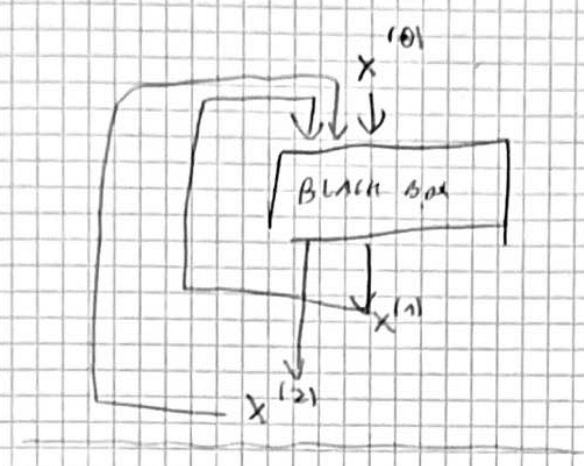 X^(0)
BLACK BOX
X^(1)
X^(2)